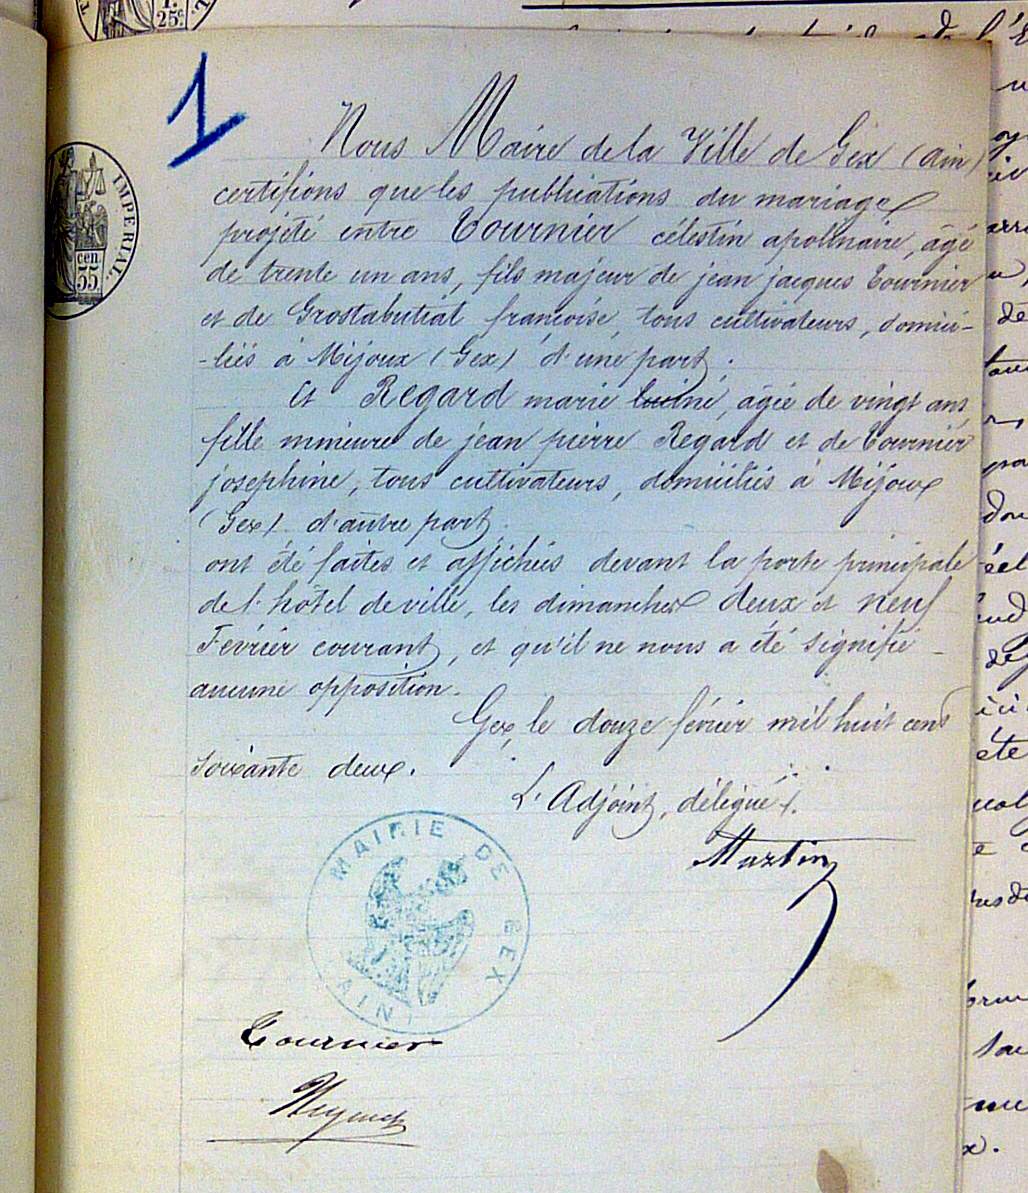 1.
25c
1
IMPERIAL.
cen
55
Nous Maire de la Ville de Gex (Ain)
certifions que les publications du mariage
projeté entre Tournier célestin apolinaire, âgé
de trente un ans, fils majeur de jean jacques Tournier
et de Grostabutiat francoise, tous cultivateurs, domici-
-liés à Mijoux (Gex) d'une part.
Et Regard marie , âgée de vingt ans
fille mineure de jean pierre Regard et de Tournier
josephine, tous cultivateurs, domiciliés à Mijoux
(Gex) d'autre part.
ont été faites et affichées devant la porte principale
de l'hôtel de ville, les dimanches deux et neuf
Février courant, et qu'il ne nous a été signifié
aucune opposition.
Gex, le douze février mil huit cent
soixante deux.
L'Adjoint, délégué.
Martin
MAIRIE DE GEX
(AIN)
Tournier